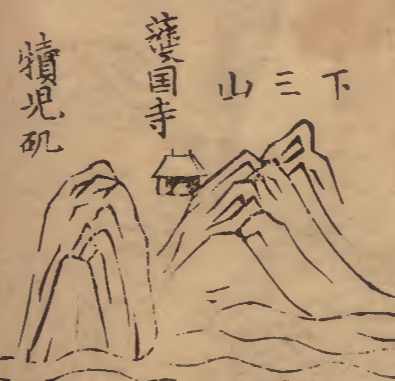 下三山
䕶国寺
犢児矶